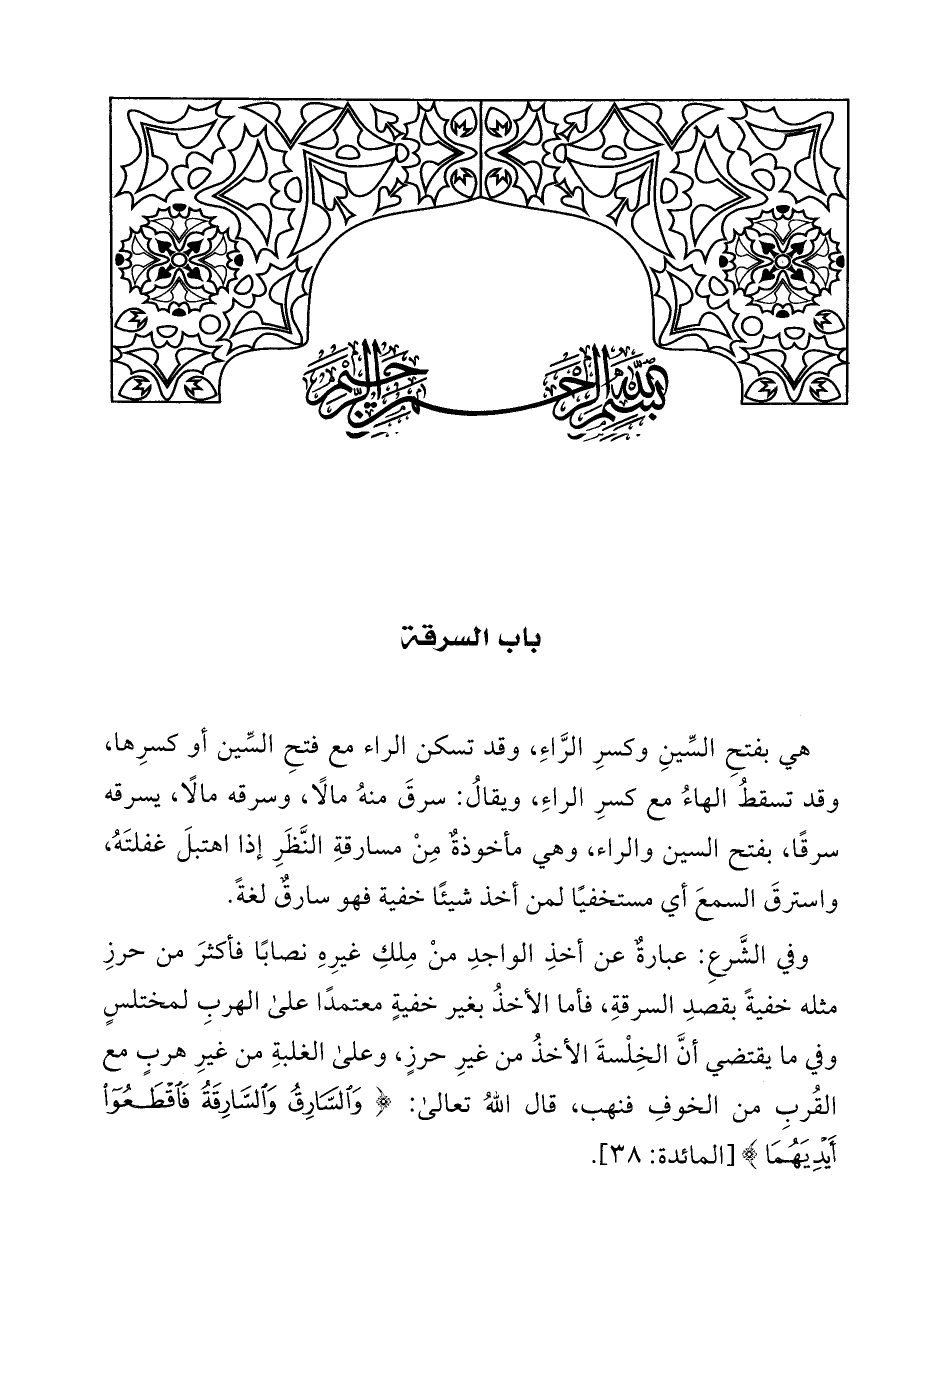 بسم الله الرحمن الرحيم
باب السرقة
هي بفتحِ السِّينِ وكسرِ الرَّاءِ، وقد تسكن الراء مع فتحِ السِّين أو كسرِها،
وقد تسقطُ الهاءُ مع كسرِ الراءِ، ويقالُ: سرقَ منهُ مالًا، وسرقه مالًا، يسرقه
سرقًا، بفتح السين والراء، وهي مأخوذةٌ مِنْ مسارقةِ النَّظَرِ إذا اهتبلَ غفلتَهُ،
واسترقَ السمعَ أي مستخفيًا لمن أخذ شيئًا خفية فهو سارقٌ لغةً.
وفي الشَّرعِ: عبارةٌ عن أخذِ الواجدِ منْ مِلكِ غيرِهِ نصابًا فأكثرَ من حرزِ
مثله خفيةً بقصدِ السرقةِ، فأما الأخذُ بغير خفيةٍ معتمدًا علىٰ الهربِ لمختلسٍ
وفي ما يقتضي أنَّ الخِلْسةَ الأخذُ من غيرِ حرزٍ، وعلىٰ الغلبةِ من غيرِ هربٍ مع
القُربِ من الخوفِ فنهب، قال اللهُ تعالىٰ: ﴿ وَٱلسَّارِقُ وَٱلسَّارِقَةُ فَٱقْطَعُوٓا۟
أَيْدِيَهُمَا ﴾ [المائدة: ٣٨].